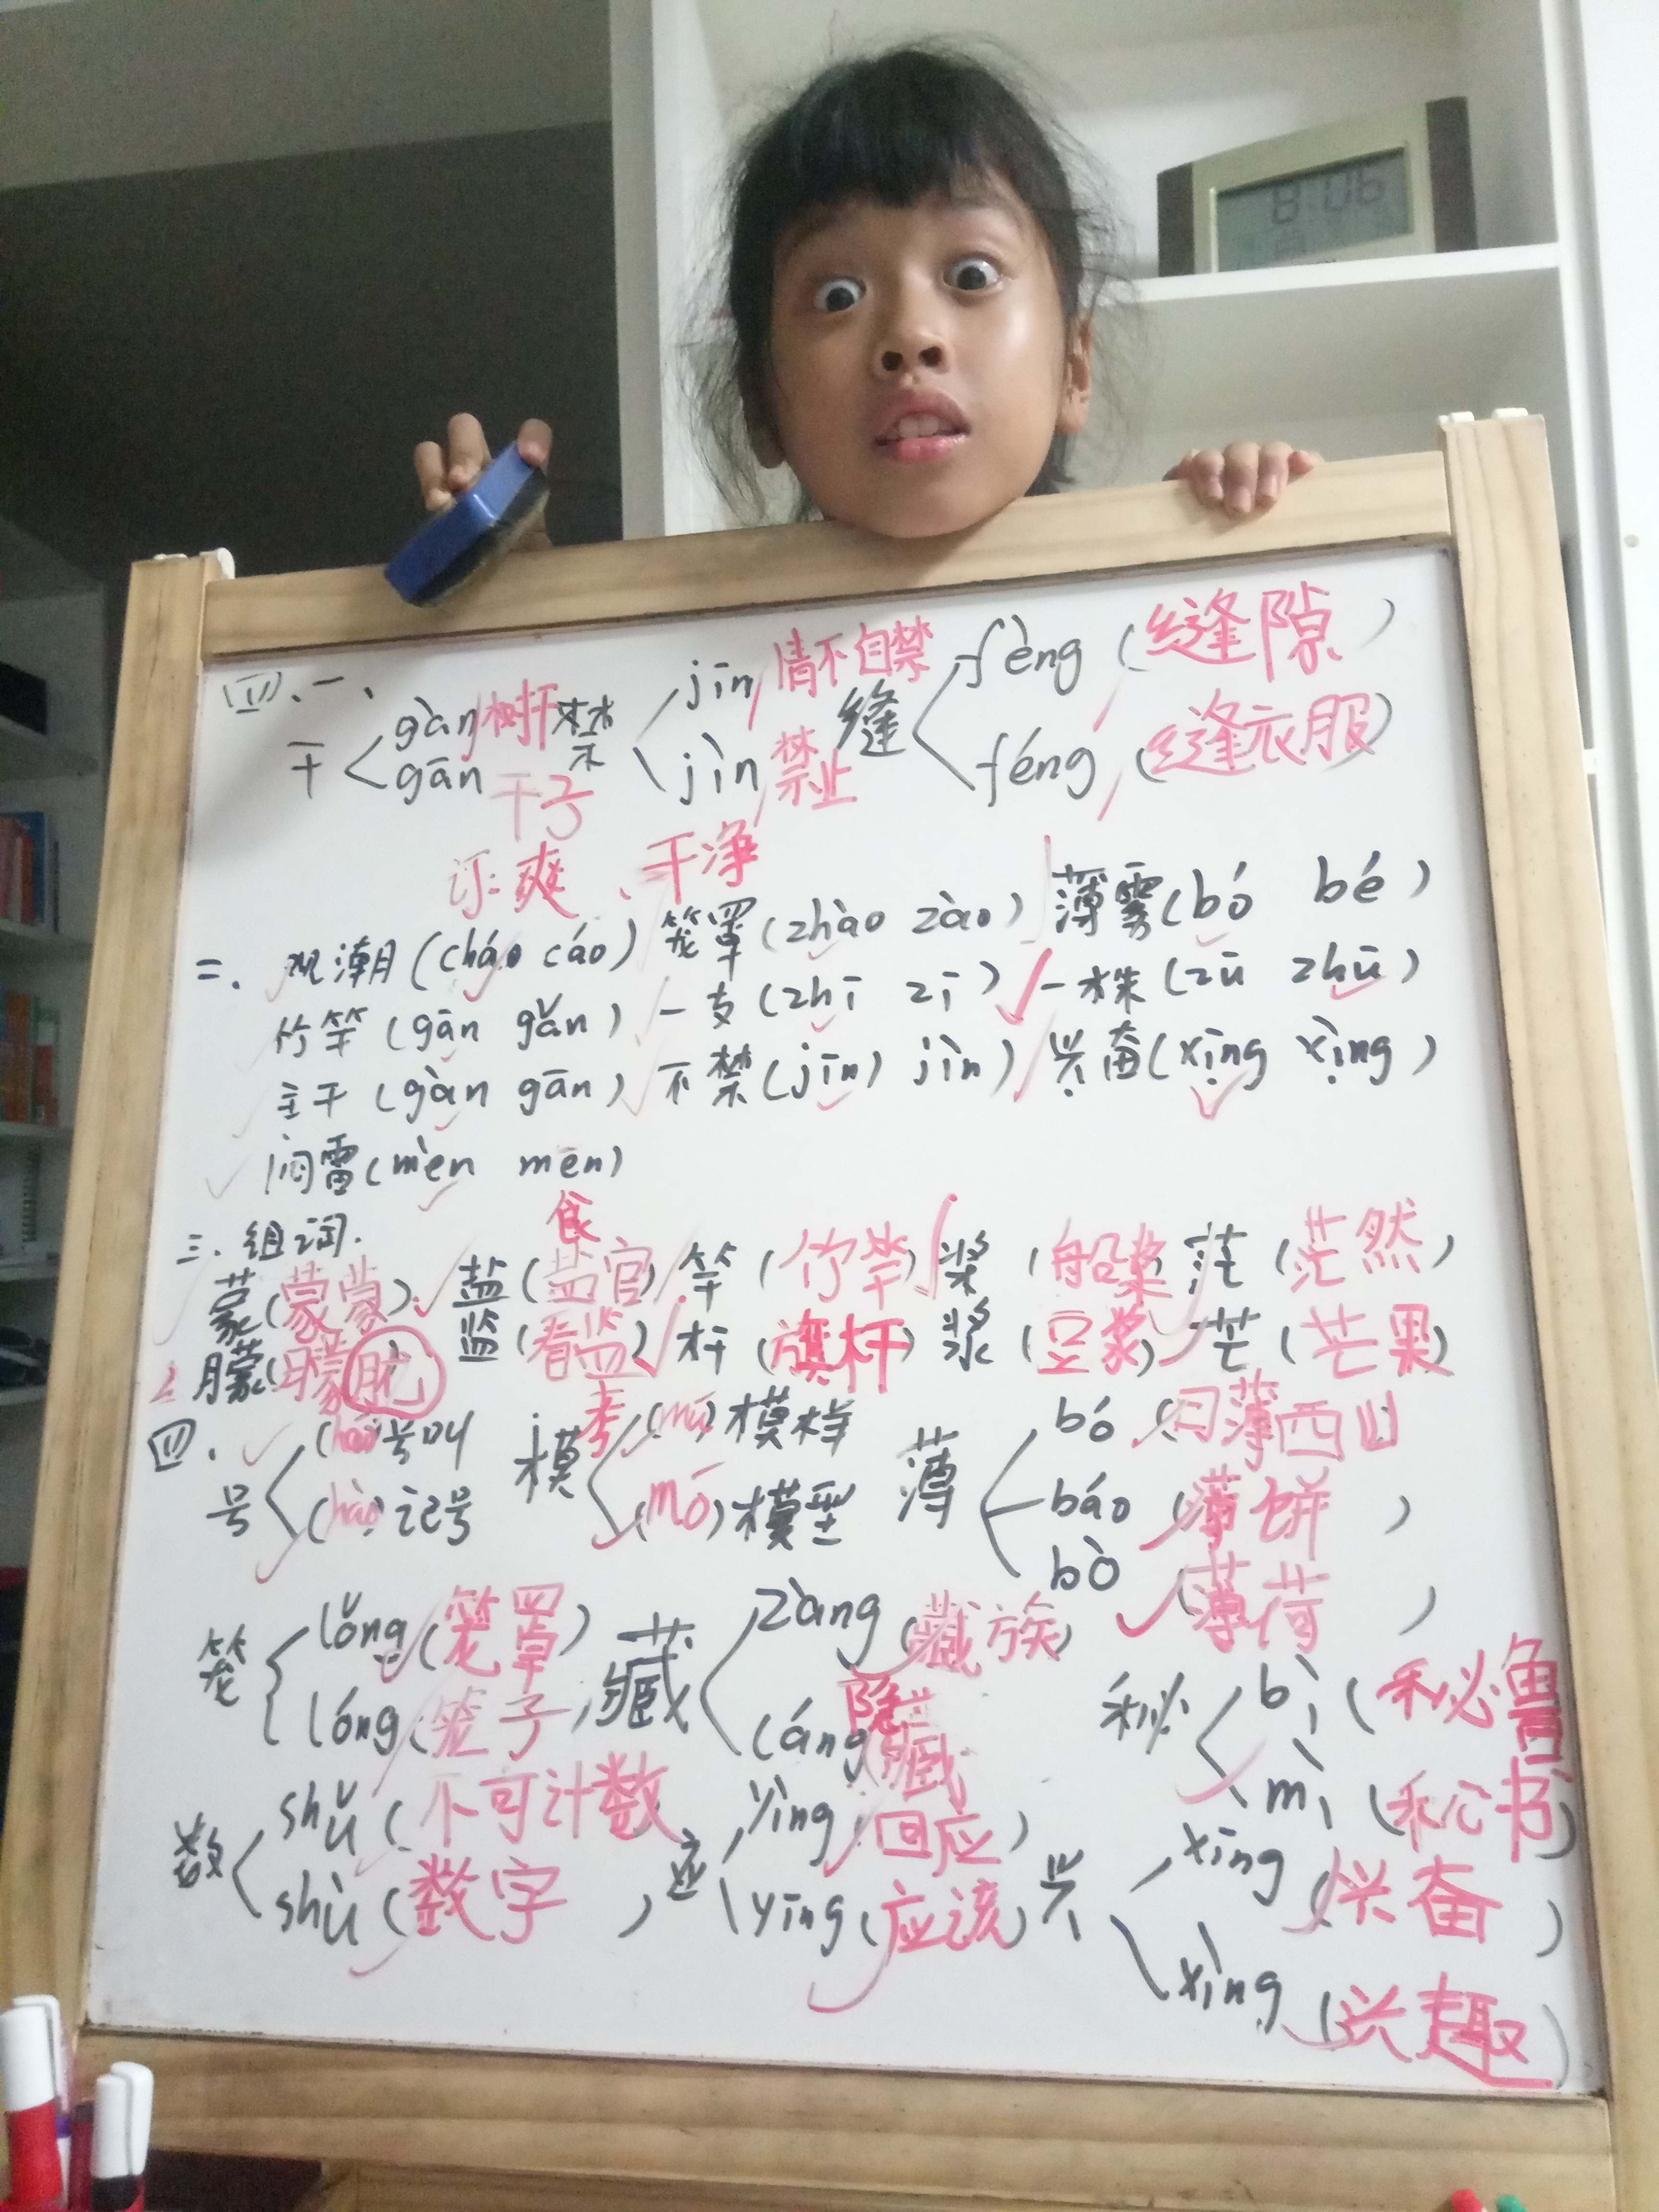 8:06
四、一、
干 gàn 树干 gān 干子 禁 jīn 情不自禁 jìn 禁止 缝 fèng (缝隙) féng (缝衣服)
爽、干净
二、观潮(cháo cáo) 笼罩(zhào zào) 薄雾(bó bé)
竹竿(gān gǎn) 一支(zhī zī) 一株(zū zhū)
主干(gàn gān) 不禁(jīn) jìn) 兴奋(xīng xìng)
闷雷(mèn mēn)
三、组词.
食
蒙(蒙蒙) 盐(盐官) 竿(竹竿) 桨(船桨) 茫(茫然)
朦(朦胧) 监(看监) 杆(旗杆) 浆(豆浆) 芒(芒果)
考
四、号 (háo)号叫 (hào)记号 模 (mú)模样 (mó)模型 薄 bó (日薄西山 báo (薄饼) bò (薄荷)
笼 lǒng(笼罩) lóng(笼子) 藏 zàng(藏族) cáng 隐藏 秘 bì(秘鲁 mì(秘书)
数 shǔ(不可计数 shù(数字) 应 yìng 回应) yīng(应该) 兴 xīng(兴奋) xìng(兴趣)